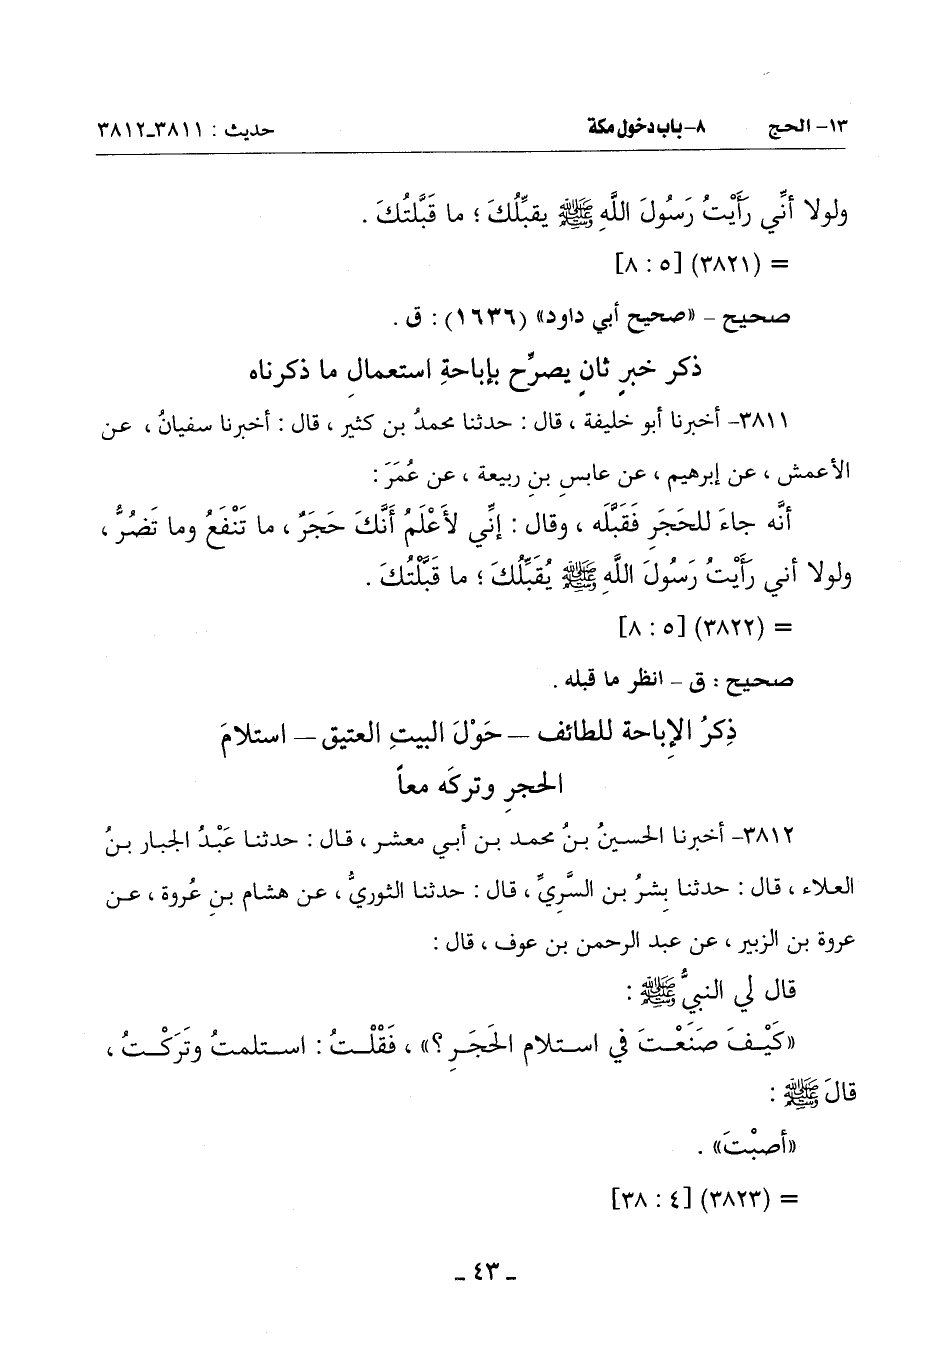 ١٣- الحج ٨- باب دخول مكة حديث : ٣٨١١-٣٨١٢
ولولا أنِّي رَأَيْتُ رَسُولَ اللَّهِ ﷺ يقبِّلُكَ ؛ ما قَبَّلتُكَ .
= (٣٨٢١) [٥ : ٨]
صحيح - «صحيح أبي داود» (١٦٣٦) : ق .
ذكر خبرٍ ثانٍ يصرِّح بإباحةِ استعمالِ ما ذكرناه
٣٨١١- أخبرنا أبو خليفة ، قال : حدثنا محمدُ بن كثير ، قال : أخبرنا سفيانُ ، عن
الأعمش ، عن إبرهيم ، عن عابسِ بنِ ربيعة ، عن عُمَرَ :
أنَّه جاءَ للحَجَرِ فَقَبَّلَه ، وقال : إنِّي لأَعْلَمُ أَنَّكَ حَجَرٌ ، ما تَنْفَعُ وما تَضُرُّ ،
ولولا أني رَأَيْتُ رَسُولَ اللَّهِ ﷺ يُقَبِّلُكَ ؛ ما قَبَّلْتُكَ .
= (٣٨٢٢) [٥ : ٨]
صحيح : ق - انظر ما قبله .
ذِكرُ الإباحة للطائف - حَوْلَ البيتِ العتيق - استلامَ
الحجرِ وتركَه معاً
٣٨١٢- أخبرنا الحسينُ بنُ محمد بن أبي معشر ، قال : حدثنا عَبْدُ الجبار بنُ
العلاء ، قال : حدثنا بِشرُ بن السَّرِيِّ ، قال : حدثنا الثوريُّ ، عن هشام بنِ عُروة ، عن
عروة بن الزبير ، عن عبد الرحمن بن عوف ، قال :
قال لي النبيُّ ﷺ :
«كَيْفَ صَنَعْتَ في استلام الحَجَرِ ؟» ، فَقْلْتُ : استلمتُ وتَرَكْتُ ،
قالَ ﷺ :
«أصبْتَ» .
= (٣٨٢٣) [٤ : ٣٨]
- ٤٣ -